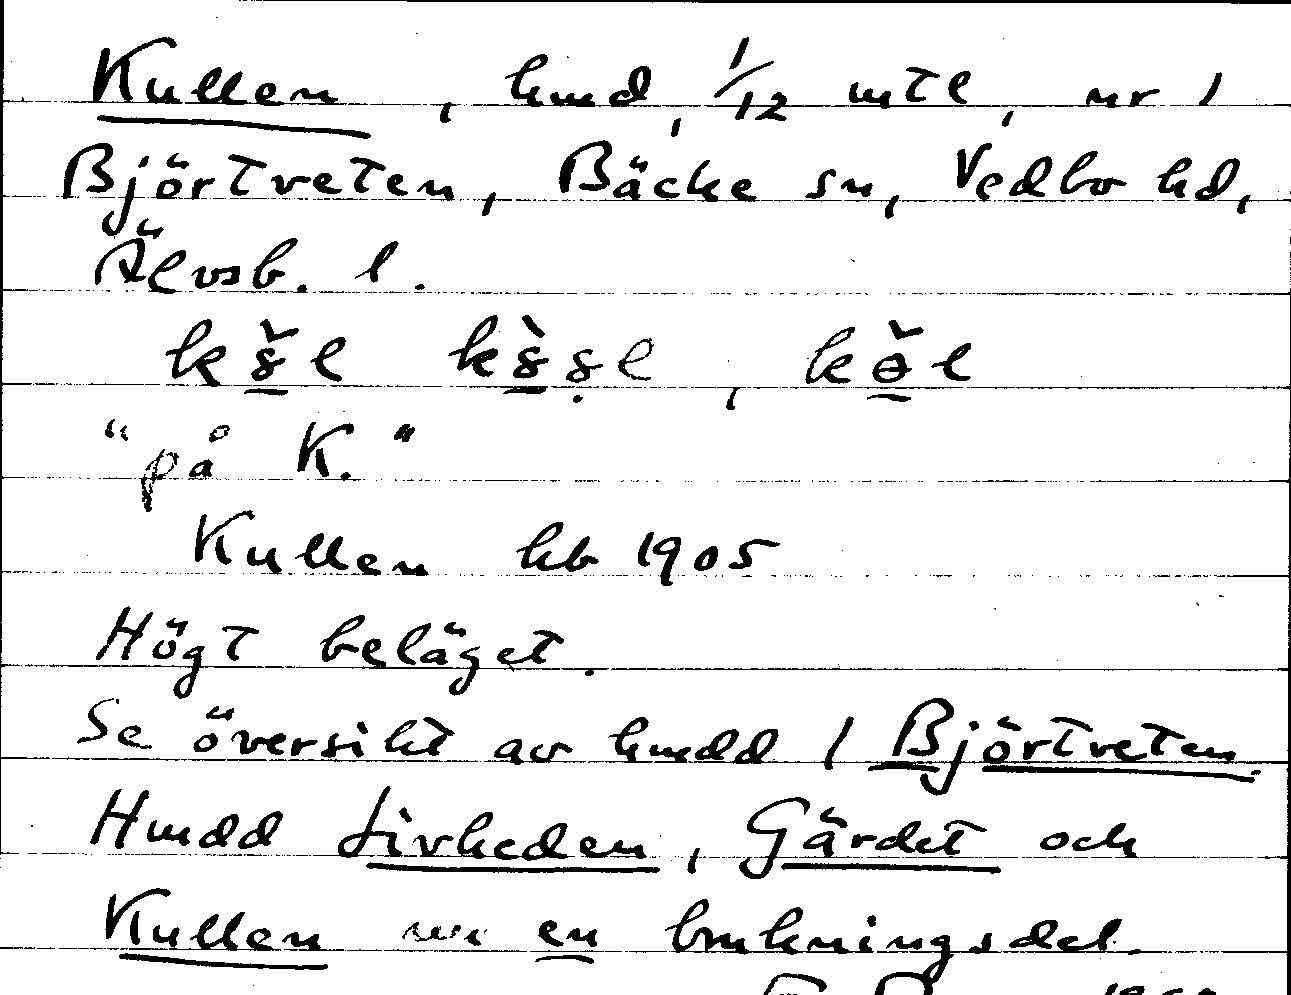 Kullen, hmd, 1/12 mtl, nr 1
Björtveten, Bäcke sn, Vedbo hd,
Älvsb. l.
"på K."
Kullen kb 1905
Högt beläget.
Se översikt av hmdd / Björtveten.
Hmdd Livheden, Gärdet och
Kullen nu en brukningsdel.